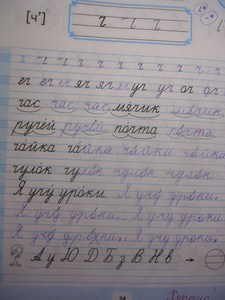 [ч'] ч ч ч
ч ч ч ч ч ч ч ч ч ч ч
еч еч еч яч яч уч уч оч оч
час час час мячик мячик
ручей ручей почта почта
чайка чайка чайка чайка
чулок чулок чулок чулок
Я учу уроки Я учу уроки.
Я учу уроки. Я учу уроки
Я учу уроки. Я учу уроки.
А у Ю Д Б з В Н в →
Хорошо